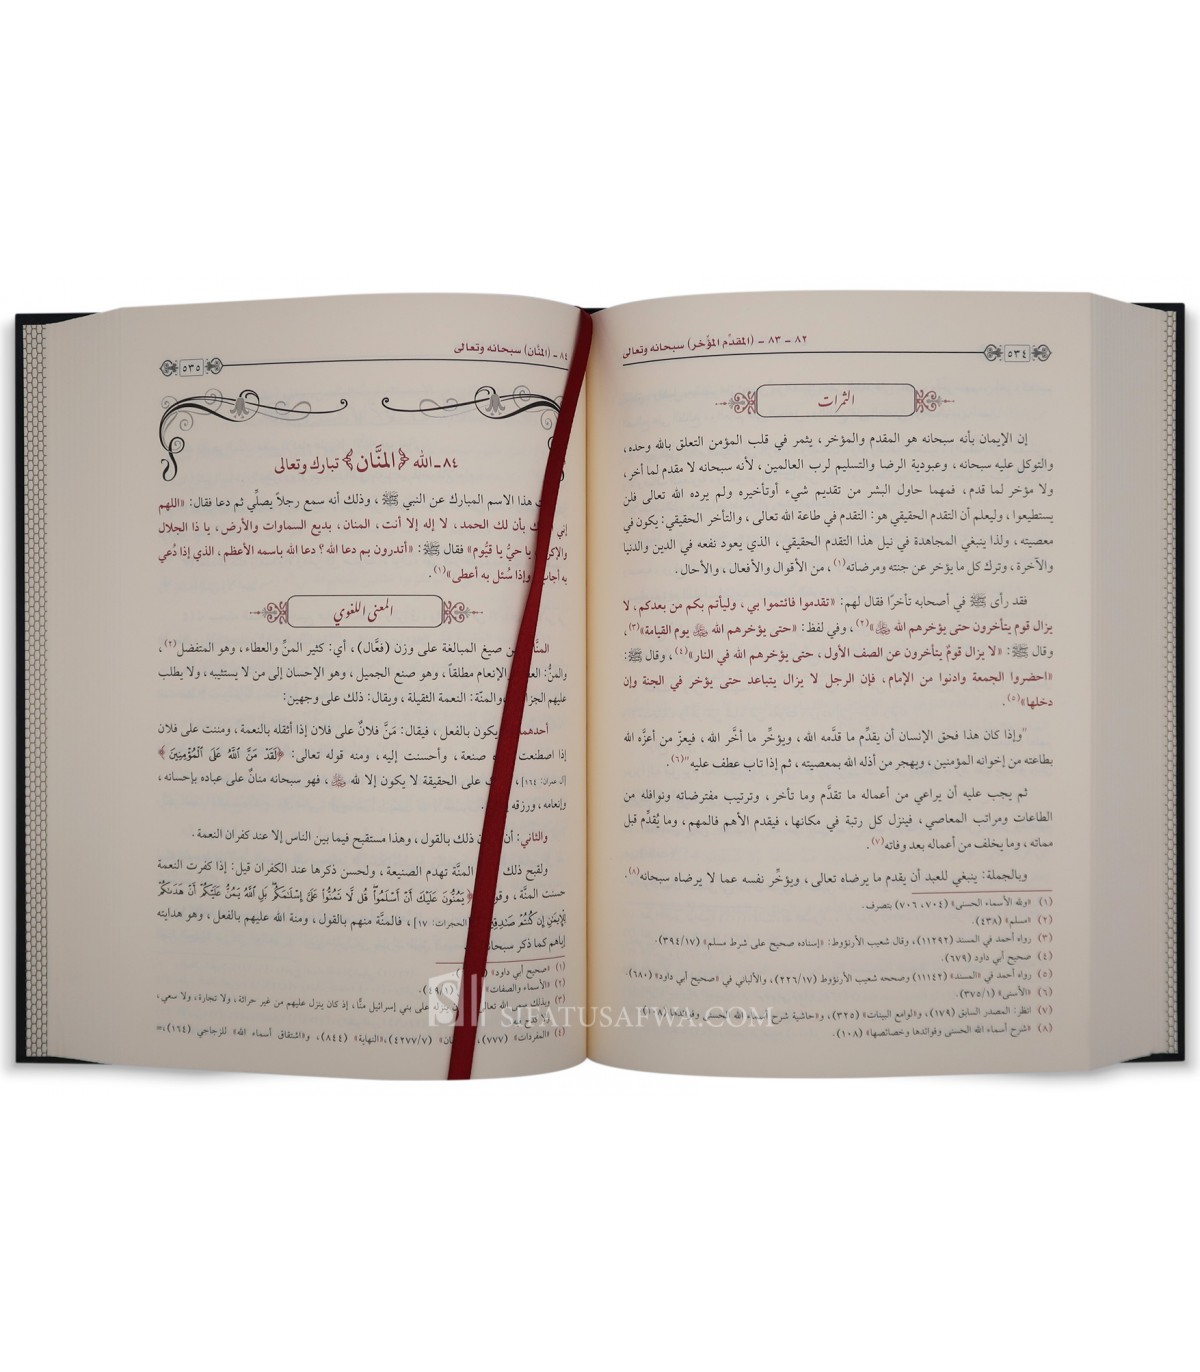 ٥٣٤
٨٢ - ٨٣ - (المقدِّم المؤخر) سبحانه وتعالى
الثمرات
إن الإيمان بأنه سبحانه هو المقدم والمؤخر، يثمر في قلب المؤمن التعلق بالله وحده،
والتوكل عليه سبحانه، وعبودية الرضا والتسليم لرب العالمين، لأنه سبحانه لا مقدم لما أخر،
ولا مؤخر لما قدم، فمهما حاول البشر من تقديم شيء أوتأخيره ولم يرده الله تعالى فلن
يستطيعوا، وليعلم أن التقدم الحقيقي هو: التقدم في طاعة الله تعالى، والتأخر الحقيقي: يكون في
معصيته، ولذا ينبغي المجاهدة في نيل هذا التقدم الحقيقي، الذي يعود نفعه في الدين والدنيا
والآخرة، وترك كل ما يؤخر عن جنته ومرضاته(١)، من الأقوال والأفعال، والأحال.
فقد رأى ﷺ في أصحابه تأخرًا فقال لهم: «تقدموا فائتموا بي، وليأتم بكم من بعدكم، لا
يزال قوم يتأخرون حتى يؤخرهم الله ﷻ»(٢)، وفي لفظ: «حتى يؤخرهم الله ﷻ يوم القيامة»(٣)،
وقال ﷺ: «لا يزال قومٌ يتأخرون عن الصف الأول، حتى يؤخرهم الله في النار»(٤)، وقال ﷺ:
«احضروا الجمعة وادنوا من الإمام، فإن الرجل لا يزال يتباعد حتى يؤخر في الجنة وإن
دخلها»(٥).
"وإذا كان هذا فحق الإنسان أن يقدِّم ما قدَّمه الله، ويؤخِّر ما أخَّر الله، فيعزّ من أعزَّه الله
بطاعته من إخوانه المؤمنين، ويهجر من أذله الله بمعصيته، ثم إذا تاب عطف عليه"(٦).
ثم يجب عليه أن يراعي من أعماله ما تقدَّم وما تأخر، وترتيب مفترضاته ونوافله من
الطاعات ومراتب المعاصي، فينزل كل رتبة في مكانها، فيقدم الأهم فالمهم، وما يُقدِّم قبل
مماته، وما يخلف من أعماله بعد وفاته(٧).
وبالجملة: ينبغي للعبد أن يقدم ما يرضاه تعالى، ويؤخِّر نفسه عما لا يرضاه سبحانه(٨).
(١) «ولله الأسماء الحسنى» (٧٠٤، ٧٠٦) بتصرف.
(٢) «مسلم» (٤٣٨).
(٣) رواه أحمد في المسند (١١٢٩٢)، وقال شعيب الأرنؤوط: «إسناده صحيح على شرط مسلم» (٣٩٤/١٧).
(٤) صحيح أبي داود (٦٧٩).
(٥) رواه أحمد في «المسند» (١١١٤٢) وصححه شعيب الأرنؤوط (٢٢٦/١٧)، والألباني في «صحيح أبي داود» (٦٨٠).
(٦) «الأسنى» (٣٧٥/١).
(٧) انظر: المصدر السابق (١٧٩)، و«لوامع البينات» (٣٢٥)، و«حاشية شرح أسماء الله الحسنى وفوائدها» (١٥٨).
(٨) «شرح أسماء الله الحسنى وفوائدها وخصائصها» (١٠٨).
٨٤- (المنَّان) سبحانه وتعالى
٥٣٥
٨٤-الله ﴿المنَّان﴾ تبارك وتعالى
هذا الاسم المبارك عن النبي ﷺ، وذلك أنه سمع رجلاً يصلِّي ثم دعا فقال: «اللهم
إني بأن لك الحمد، لا إله إلا أنت، المنان، بديع السماوات والأرض، يا ذا الجلال
يا حيُّ يا قيُّوم» فقال ﷺ: «أتدرون بم دعا الله؟ دعا الله باسمه الأعظم، الذي إذا دُعي
به وإذا سُئل به أعطى»(١).
المعنى اللغوي
من صيغ المبالغة على وزن (فعَّال)، أي: كثير المنِّ والعطاء، وهو المتفضل(٢)،
والمنُّ: والإنعام مطلقاً، وهو صنع الجميل، وهو الإحسان إلى من لا يستثيبه، ولا يطلب
عليهم والمنّة: النعمة الثقيلة، ويقال: ذلك على وجهين:
يكون بالفعل، فيقال: مَنَّ فلانٌ على فلان إذا أثقله بالنعمة، ومننت على فلان
إذا اصطنعت صنعة، وأحسنت إليه، ومنه قوله تعالى: ﴿لَقَدْ مَنَّ اللَّهُ عَلَى الْمُؤْمِنِينَ﴾
[آل عمران: ١٦٤]، على الحقيقة لا يكون إلا لله ﷻ، فهو سبحانه منانٌ على عباده بإحسانه،
وإنعامه، ورزقه
والثاني: أن ذلك بالقول، وهذا مستقبح فيما بين الناس إلا عند كفران النعمة.
ولقبح ذلك المنَّة تهدم الصنيعة، ولحسن ذكرها عند الكفران قيل: إذا كفرت النعمة
حسنت المنَّة، ﴿يَمُنُّونَ عَلَيْكَ أَنْ أَسْلَمُوا قُل لَّا تَمُنُّوا عَلَيَّ إِسْلَامَكُم بَلِ اللَّهُ يَمُنُّ عَلَيْكُمْ أَنْ هَدَاكُمْ
لِلْإِيمَانِ إِن كُنتُمْ صَادِقِينَ [الحجرات: ١٧]، فالمنَّة منهم بالقول، ومنة الله عليهم بالفعل، وهو هدايته
إياهم كما ذكر
(١) «صحيح أبي داود»
(٢) «الأسماء والصفات»
(٣) وبذلك سمى الله تعالى على بني إسرائيل منًّا، إذ كان ينزل عليهم من غير حراثة، ولا تجارة، ولا سعي،
ولا كدح
(٤) «المفردات» (٧٧٧)، (٤٢٧٧/٧)، «النهاية» (٨٤٤)، و«اشتقاق أسماء الله» للزجاجي (١٦٤)،=
SIFATUSAFWA.COM